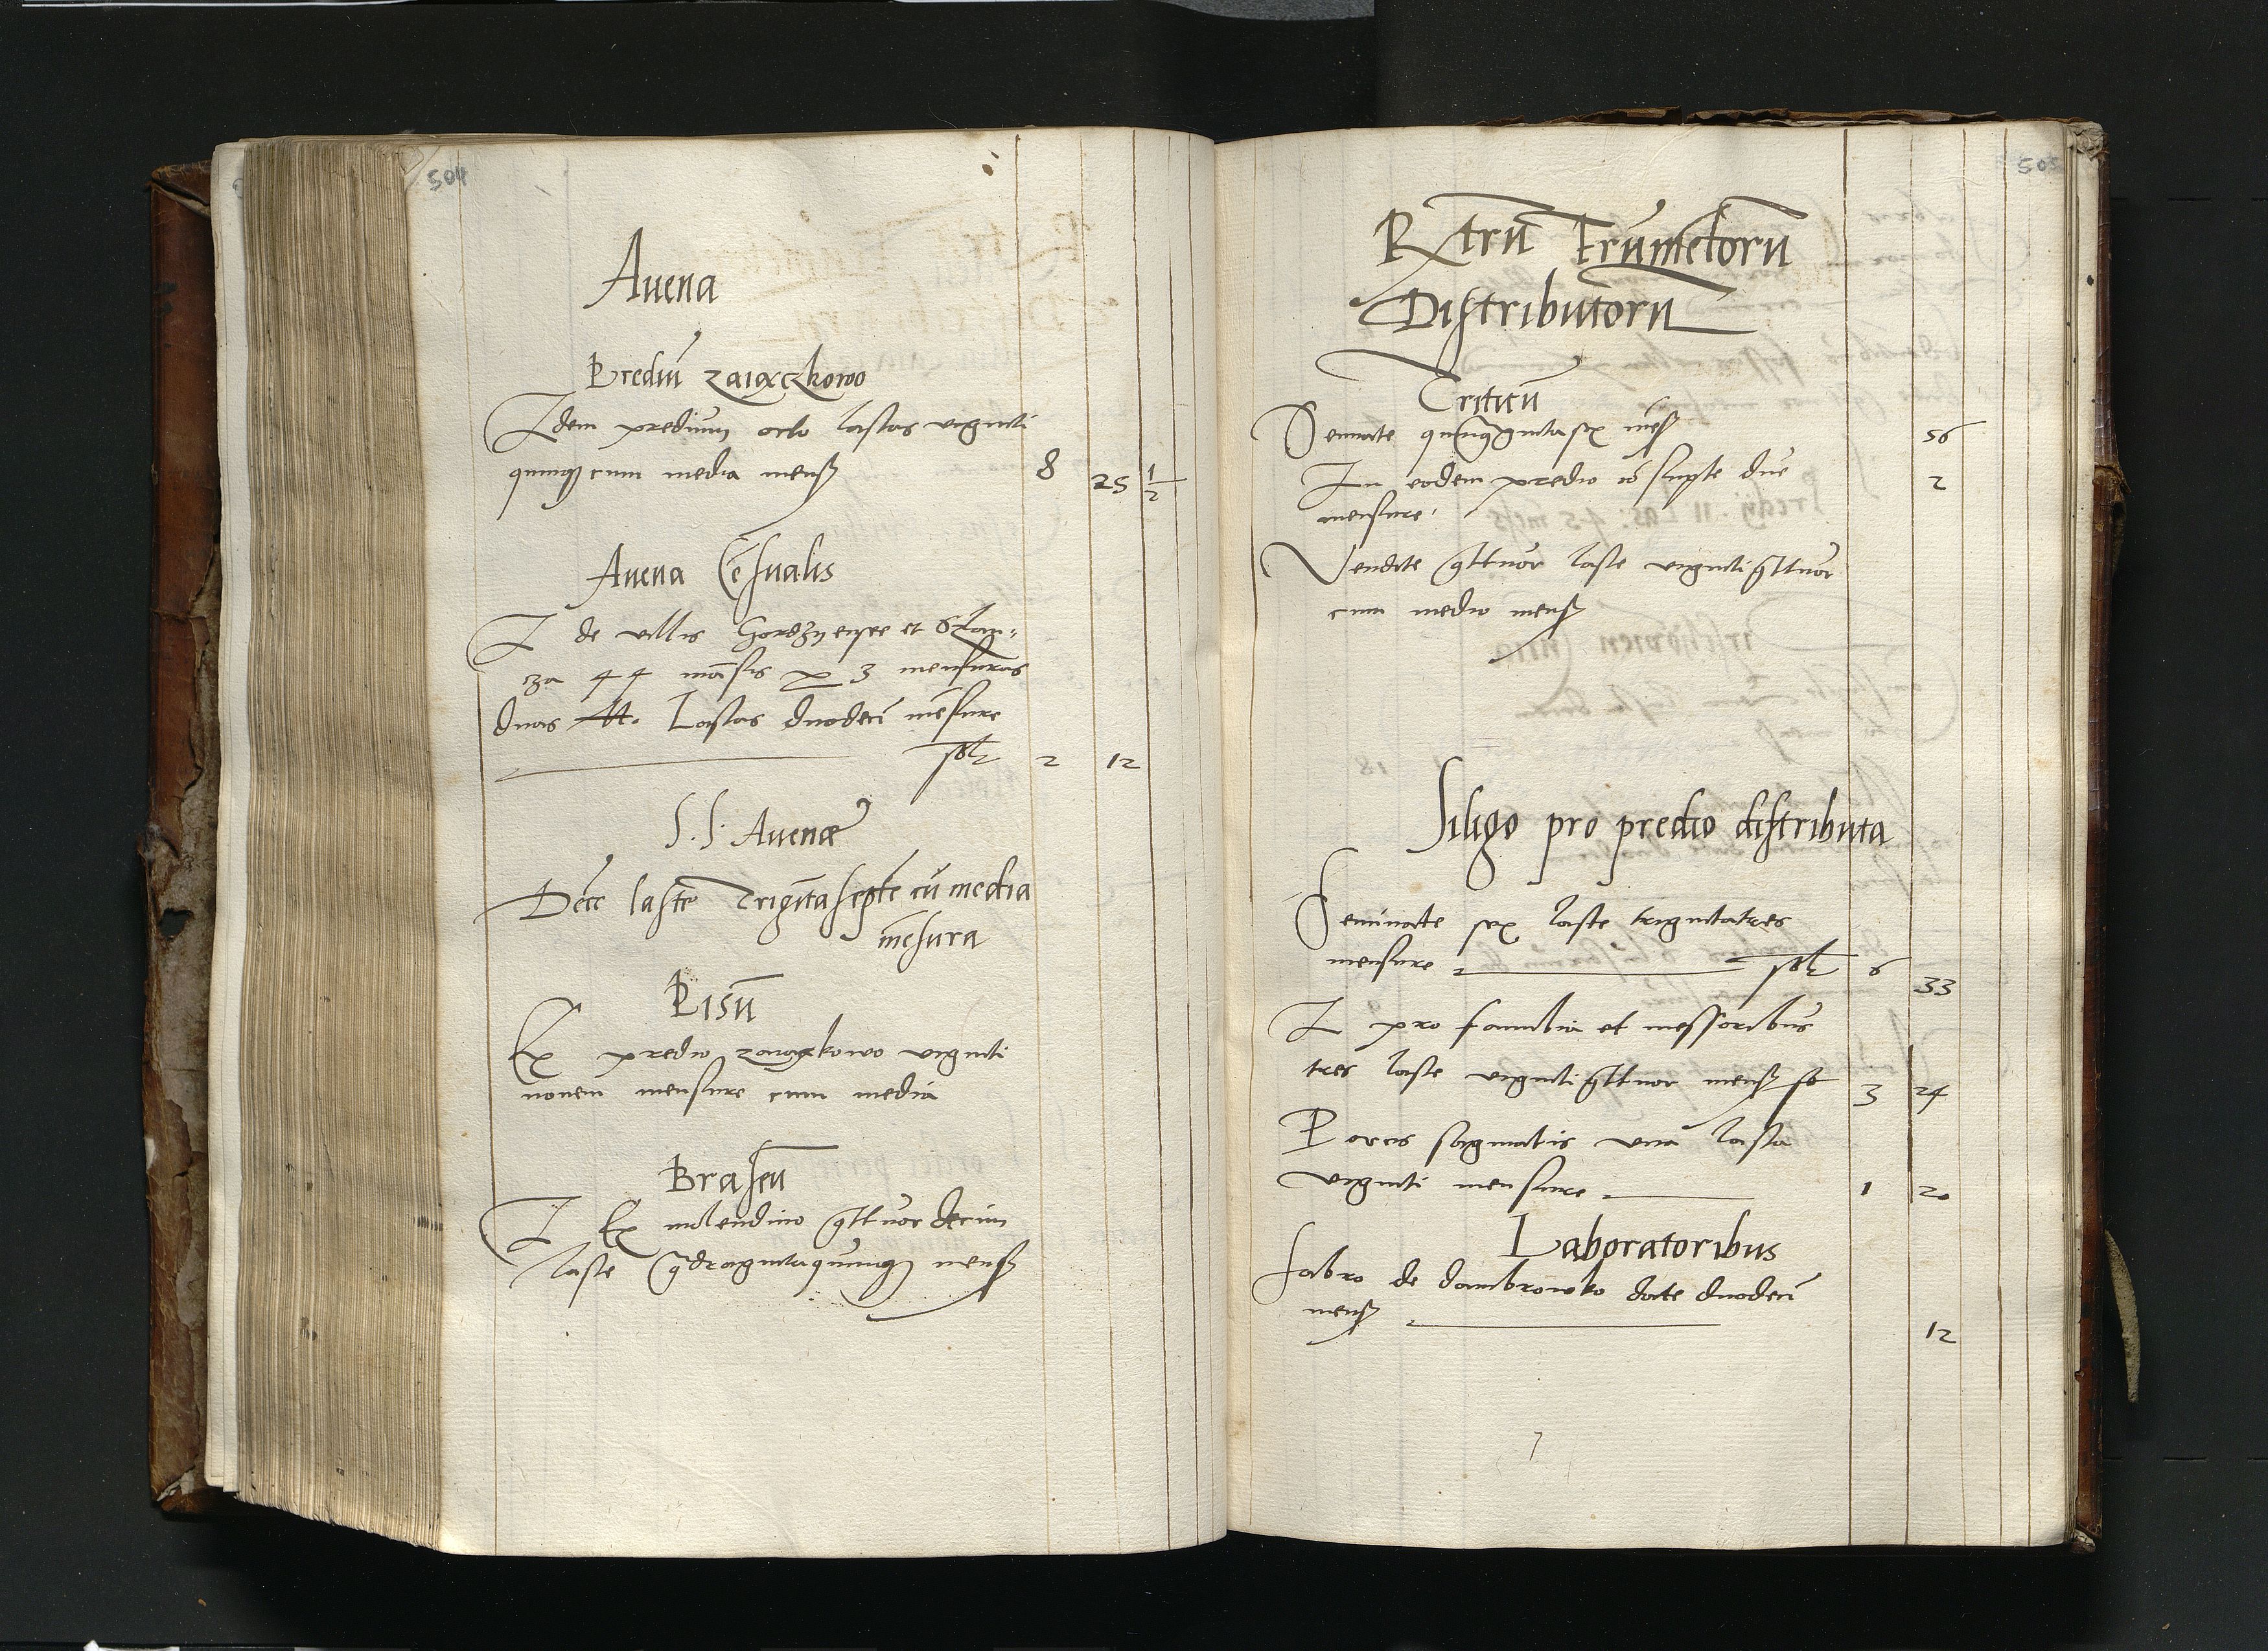 504
Auena
Prediū zaiączkowo
Idem predium octo lastas viginti
quinq3 cum media mens3 8 25 1/2
Auena Cēsualis
I de villis Gordzyensee et Slan-
za 44 māsis p 3 mensuras
duas Lastas duodecī mēsure
2 12
S. S. Auenæ
Decē laste Trigītaseptē cū media
mēsura
Pisū
Ex predio zaiączkowo viginti
nouem mensure cum media
Braseū
I Ex molendino qttuordecim
laste qdragintaquinq3 mens3
505
Rxtrū Frumētorū
Distributorū
Triticū
Seminate quinq3gintasex mēs3 56
In eodem predio due 2
mensure
Vendite qttuor laste vigintiqttuor
cum medio mens3
Siligo pro predio distributa
Seminate sex laste trigintatres
mensure 6 33
I pro familia et messoribus
tres laste vigintiqttuor mens3 3 24
Porcis saginatis vna lasta
viginti mensure 1 20
Laboratoribus
fabro de dambrowko date duodecī
mens3 12